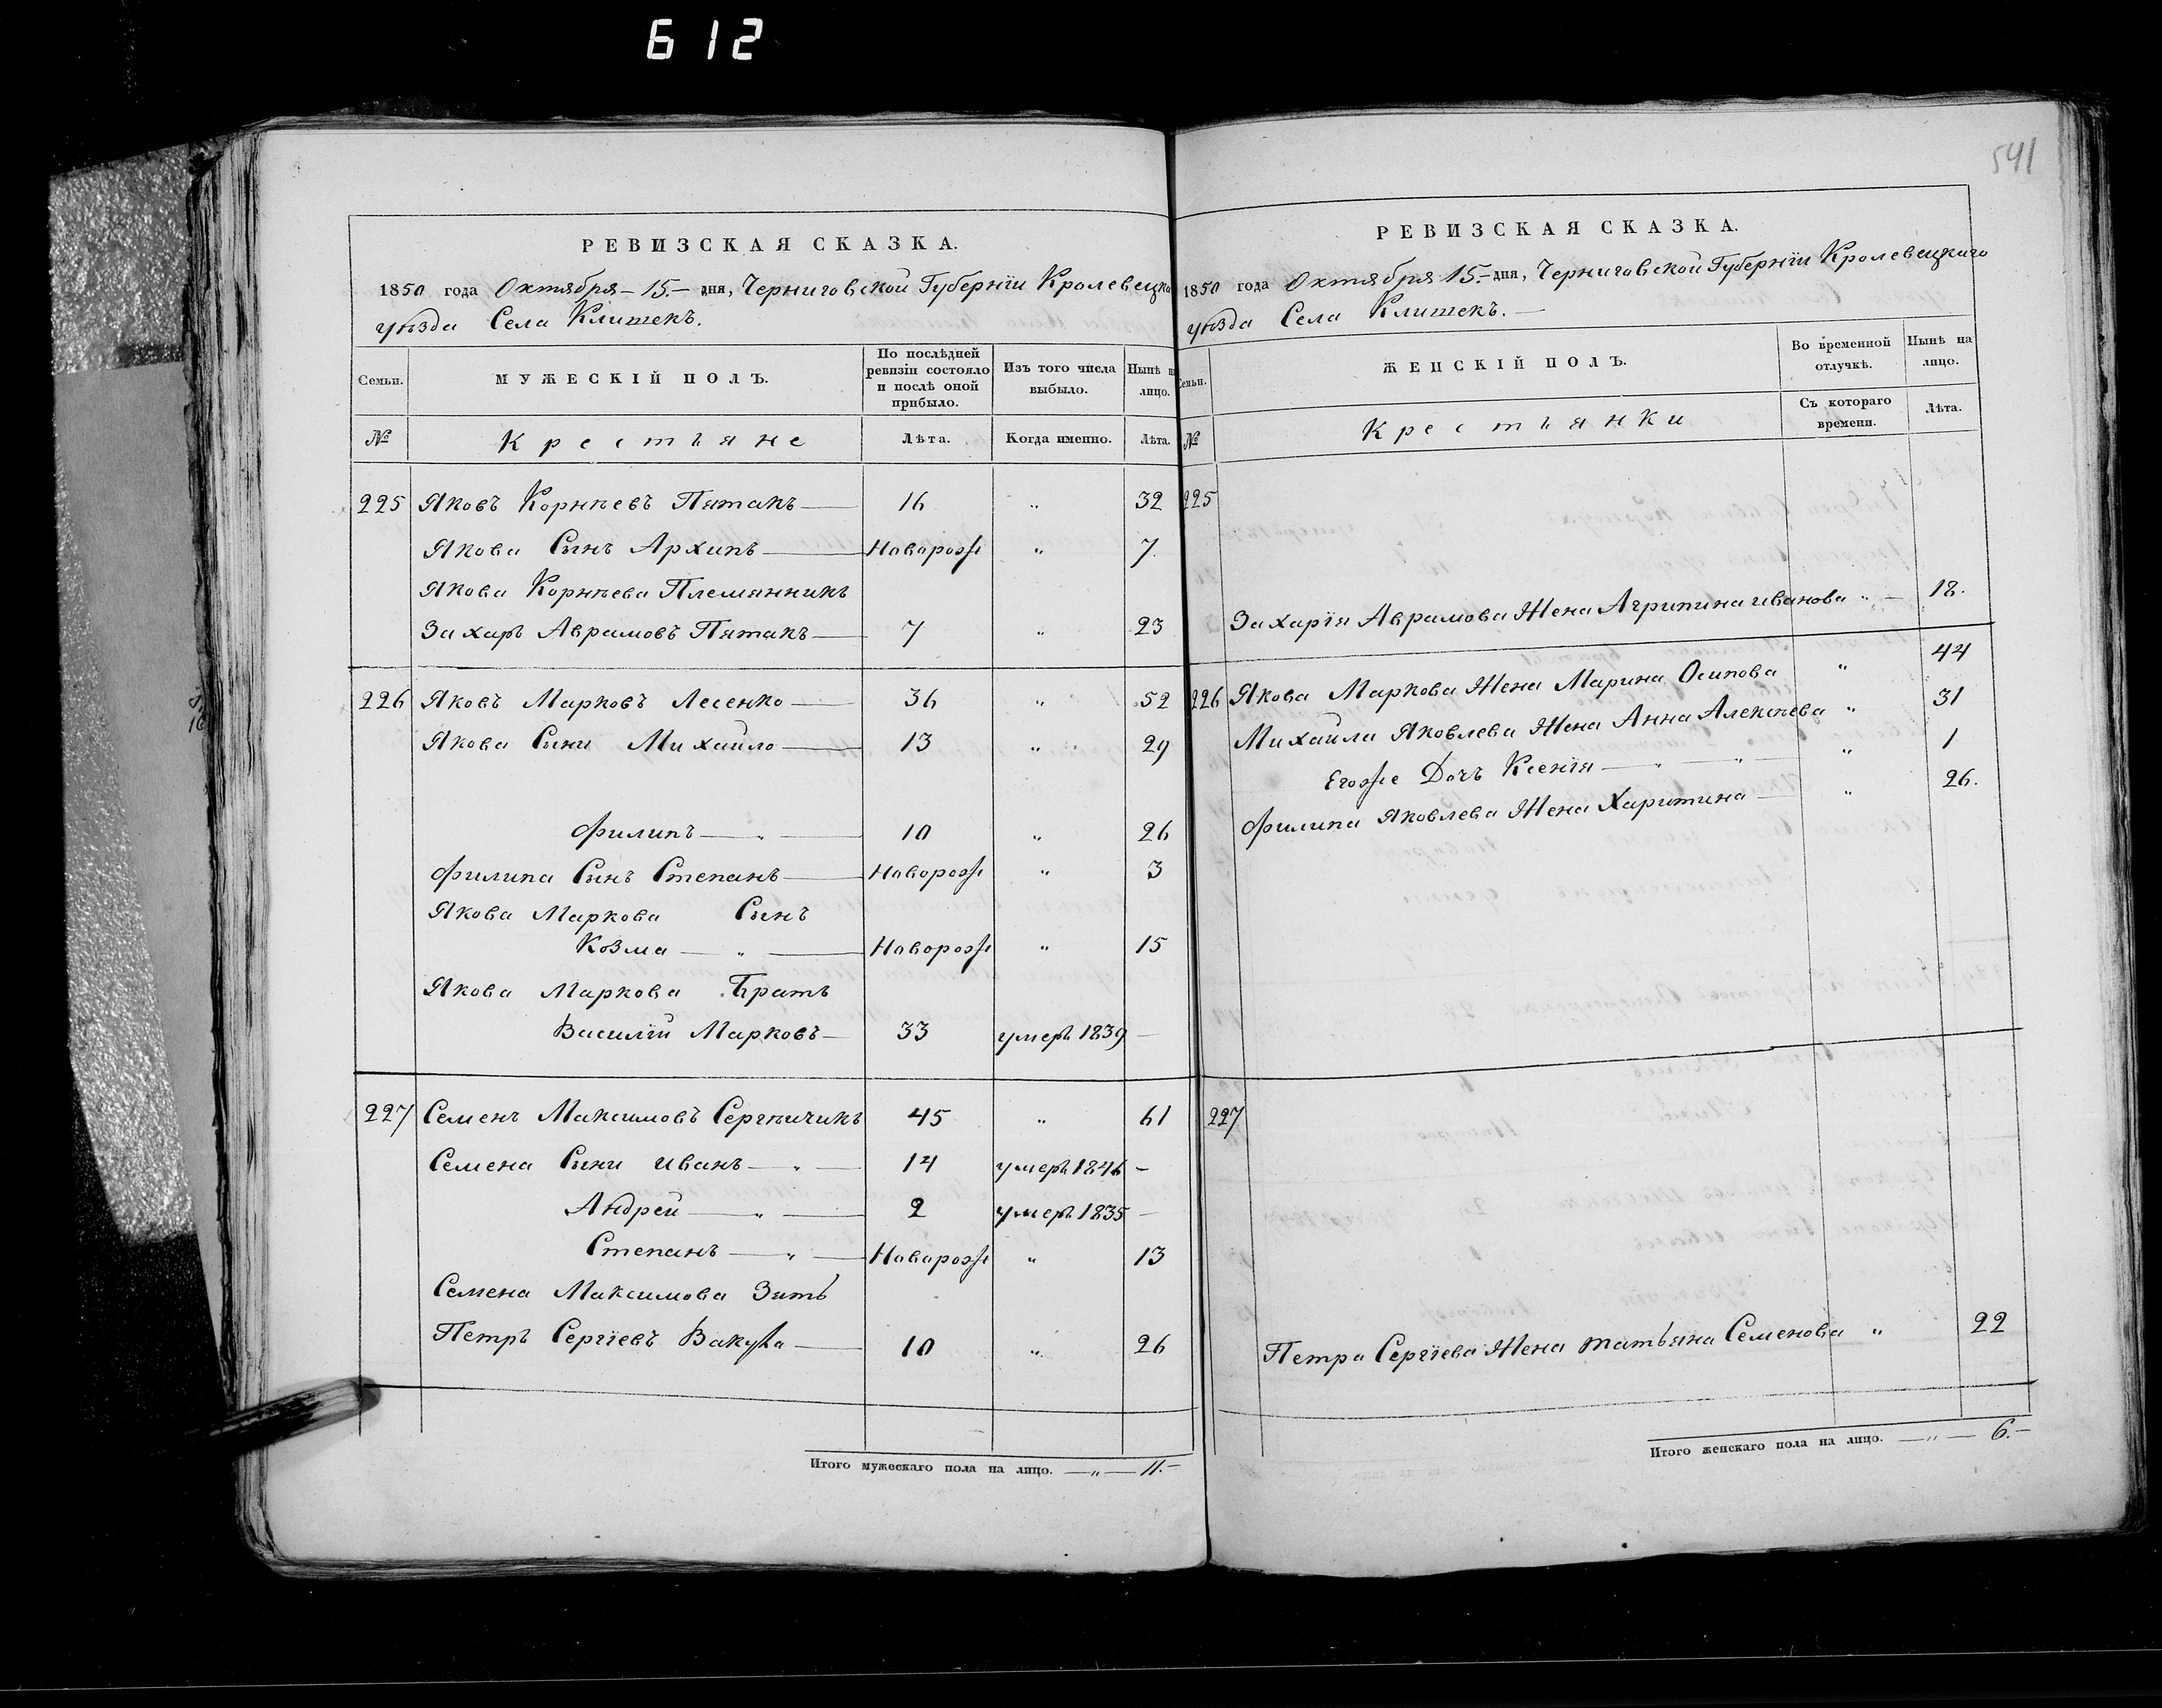 612
541
РЕВИЗСКАЯ СКАЗКА.
1850 года Октября - 15. - дня, Черниговской Губерніи Кролевецка
уѣзда Села Клишекъ.
Семьи. МУЖЕСКІЙ ПОЛЪ. По послѣдней ревизіи состояло и послѣ оной прибыло. Изъ того числа выбыло. Нынѣ на лицо.
№ Крестьяне Лѣта. Когда именно. Лѣта.
225 Яковъ Корнѣевъ Пятакъ — 16 " 32
Якова Сынъ Архипъ — Новорож " 7.
Якова Корнѣева Племянникъ
Захаръ Аврамовъ Пятакъ — 7 " 23
226 Яковъ Марковъ Лесенко — 36 " 52
Якова Сыни Михайло — 13 " 29
Филипъ — " — 10 " 26
Филипа Сынъ Степанъ — Новорож " 3
Якова Маркова Сынъ
Козма — " — Новорож " 15
Якова Маркова Братъ
Василій Марковъ — 33 умеръ 1839 —
227 Семенъ Максимовъ Сергѣичикъ 45 " 61
Семена Сыни Иванъ — " — 14 умеръ 1846 -
Андрей — " — 2 умеръ 1835 —
Степанъ — " — Новорож " 13
Семена Максимова Зять
Петръ Сергіевъ Вакула — 10 " 26
Итого мужескаго пола на лицо. — " — 11. -
РЕВИЗСКАЯ СКАЗКА.
1850 года Октября 15. - дня, Черниговской Губерніи Кролевецкаго
уѣзда Села Клишекъ. —
Семьи. ЖЕНСКІЙ ПОЛЪ. Во временной отлучкѣ. Нынѣ на лицо.
№ Крестьянки Съ котораго времени. Лѣта.
225
Захарія Аврамова Жена Агрипина Иванова " — 18.
226 Якова Маркова Жена Марина Осипова " 44
Михайла Яковлева Жена Анна Алексѣева " 31
Егоже Дочь Ксенія — " — " — " 1
Филипа Яковлева Жена Харитина — " 26.
227
Петра Сергіева Жена Татьяна Семенова " 22
Итого женскаго пола на лицо. — " — 6. -